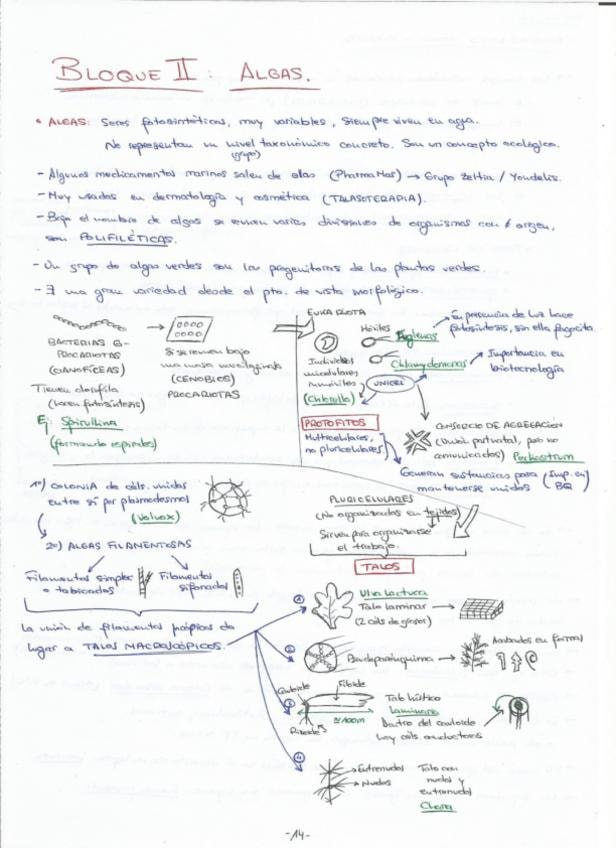 BLOQUE II: ALGAS.
• ALGAS: Seres fotosintéticos, muy variables, siempre viven en agua.
No representan un nivel taxonómico concreto. Son un concepto ecológico.
(grupo)
- Algunos medicamentos marinos salen de ellas (PharmaMar) → Grupo Zeltia / Yondelis.
- Muy usadas en dermatología y cosmética (TALASOTERAPIA).
- Bajo el nombre de algas se reunen varias divisiones de organismos con ≠ origen,
son POLIFILÉTICAS.
- Un grupo de algas verdes son las progenitoras de las plantas verdes.
- ∃ una gran variedad desde el pto. de vista morfológico.
BACTERIAS G-
PROCARIOTAS
(CIANOFÍCEAS)
Tienen clorofila
(hacen fotosíntesis)
Ej: Spirullina
(formando espirales)
Si se reunen bajo
una masa mucilaginosa
(CENOBIOS)
PROCARIOTAS
EUKARIOTA
Individuos
unicelulares
inmóviles
(Chlorella)
Móviles
Euglenas
En presencia de luz hace
fotosíntesis, sin ella fagocita.
Chlamydomonas
Importancia en
biotecnología
UNICEL
PROTOFITOS
Multicelulares,
no pluricelulares
CONSORCIO DE AGREGACIÓN
(Unión postnatal, pero no
comunicados) Pediastrum
Generan sustancias para (Imp. en)
mantenerse unidos BQ
1º) COLONIA de céls. unidas
entre sí por plasmodesmos
(Volvox)
2º) ALGAS FILAMENTOSAS
Filamentos simples
o tabicados
Filamentos
sifonados
La unión de filamentos propicia da
lugar a TALOS MACROSCÓPICOS.
PLURICELULARES
(No organizadas en tejidos)
Sirven para organizarse
el trabajo.
TALOS
1
Ulva lactuca
Talo laminar
(2 céls de grosor)
2
Pseudoparénquima
Acabados en formas
3
Cauloide
Filoide
Rizoide
≃ 100m
Talo hístico
Laminaria
Dentro del cauloide
hay céls. conductoras
4
Entrenudos
Nudos
Talo con
nudos y
entrenudos
Chara
-14-